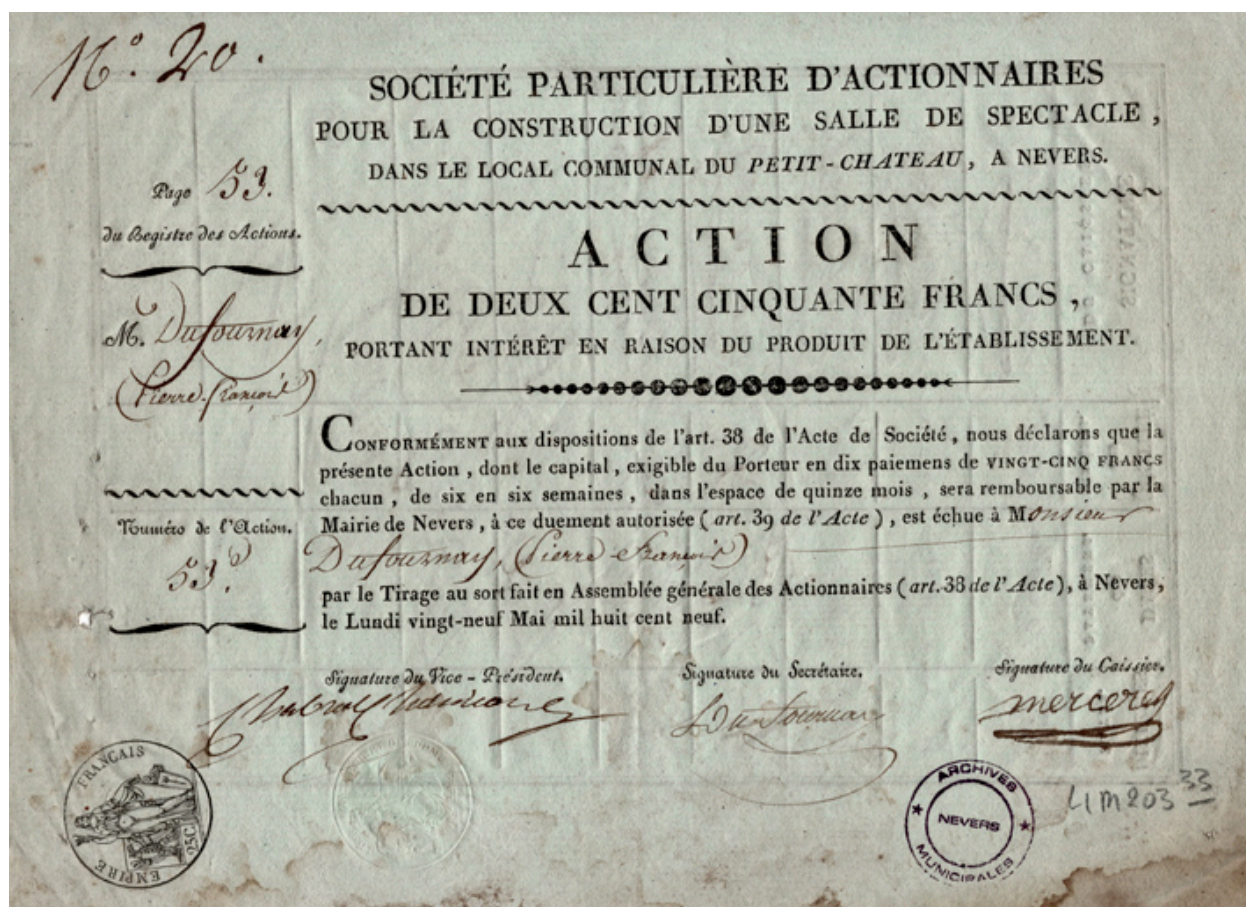 N.º 20.
SOCIÉTÉ PARTICULIÈRE D'ACTIONNAIRES
POUR LA CONSTRUCTION D'UNE SALLE DE SPECTACLE,
DANS LE LOCAL COMMUNAL DU PETIT-CHATEAU, A NEVERS.
Page 53.
du Registre des Actions.
M. Dufournay,
(Pierre-François)
Numéro de l'Action.
53.
ACTION
DE DEUX CENT CINQUANTE FRANCS,
PORTANT INTÉRÊT EN RAISON DU PRODUIT DE L'ÉTABLISSEMENT.
CONFORMÉMENT aux dispositions de l'art. 38 de l'Acte de Société, nous déclarons que la
présente Action, dont le capital, exigible du Porteur en dix paiemens de VINGT-CINQ FRANCS
chacun, de six en six semaines, dans l'espace de quinze mois, sera remboursable par la
Mairie de Nevers, à ce duement autorisée (art. 39 de l'Acte), est échue à Monsieur
Dufournay, (Pierre-François)
par le Tirage au sort fait en Assemblée générale des Actionnaires (art. 38 de l'Acte), à Nevers,
le Lundi vingt-neuf Mai mil huit cent neuf.
Signature du Vice-Président.
Signature du Secrétaire.
Signature du Caissier.
Dufournay
merceret
EMPIRE FRANÇAIS
25C
ARCHIVES
NEVERS
MUNICIPALES
4M203 33